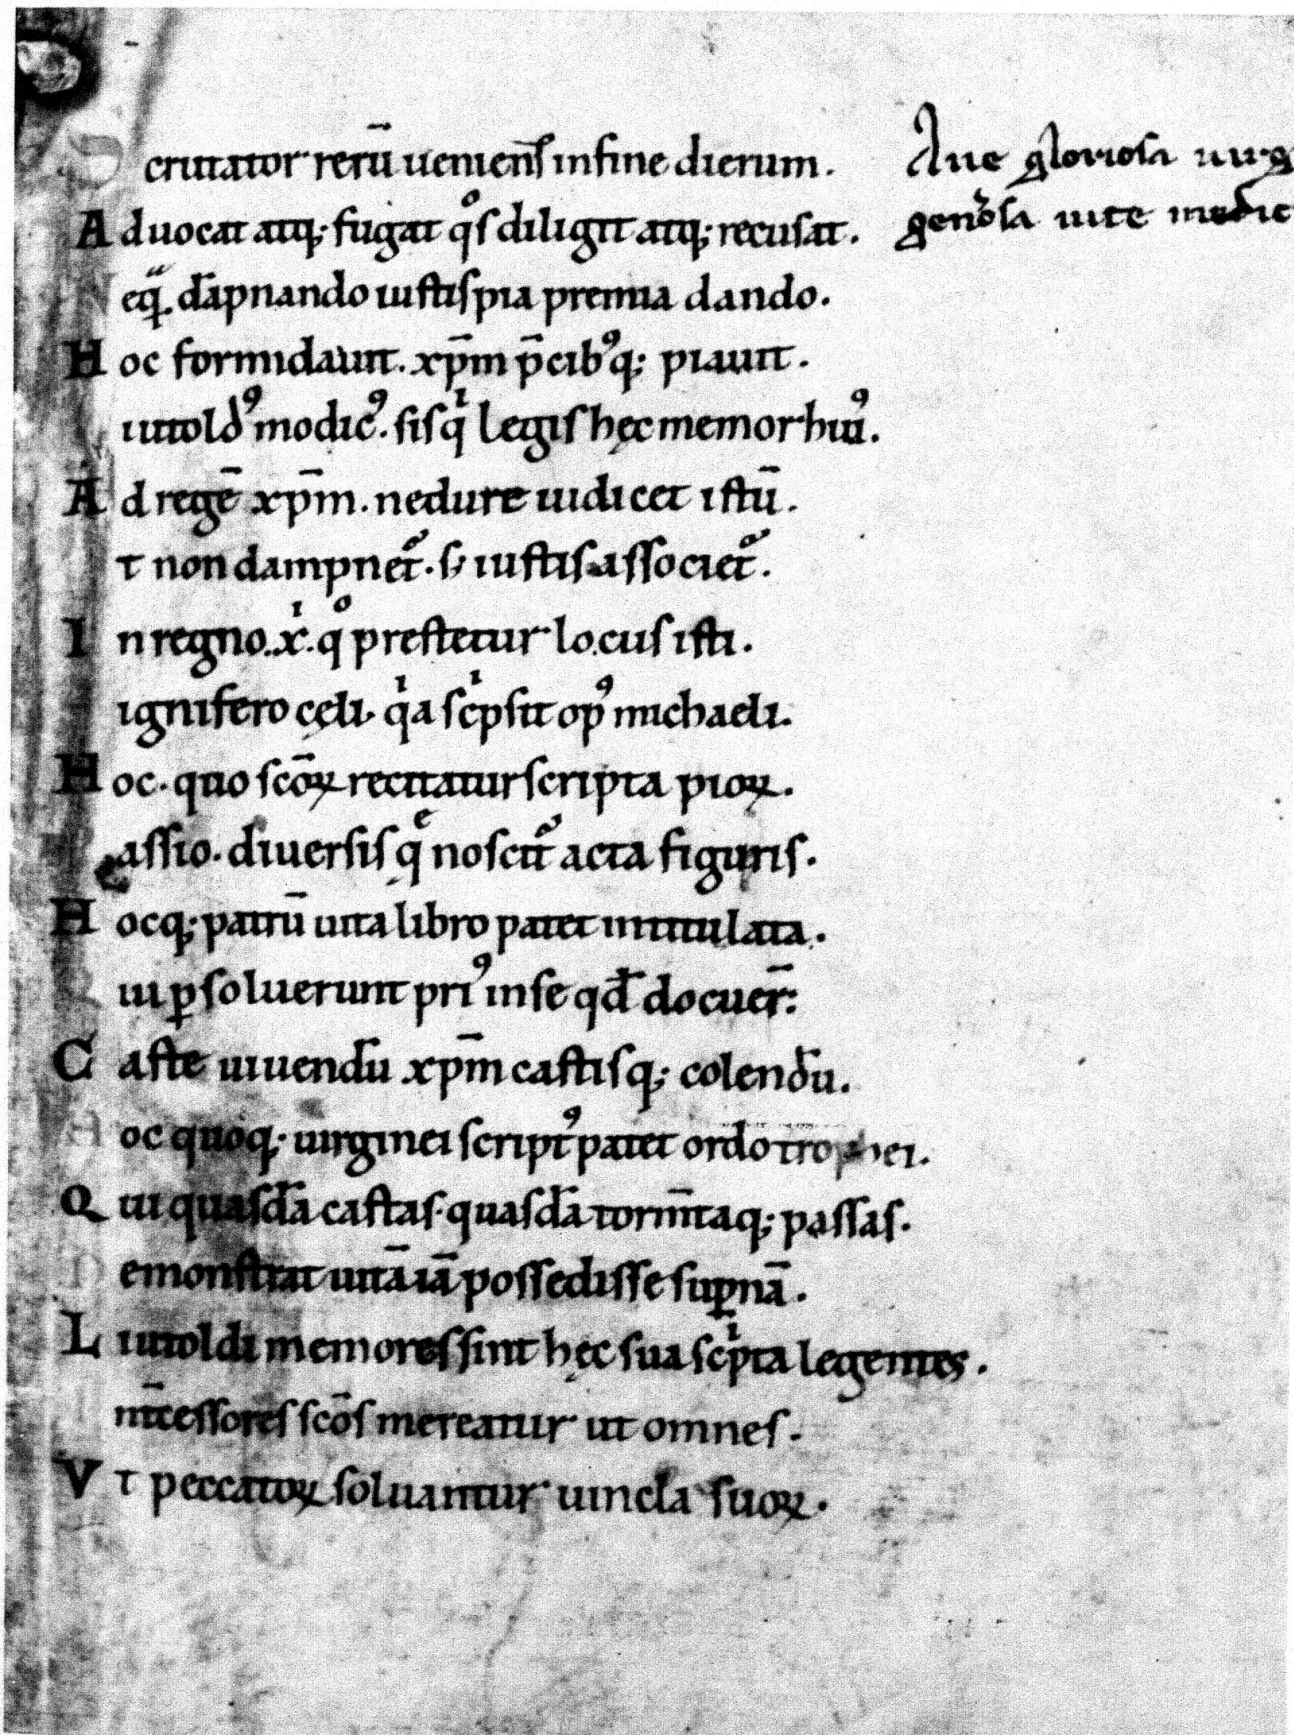 Scrutator rerū ueniens̄ infine dierum.
Aduocat atq; fugat qͦs diligit atq; recusat.
Neq̈. da̅pnando iustis pia premia dando.
Hoc formidauit. xp̄m p̄cibꝰq; piauit.
liutoldꝰ modicꝰ. sisqͥ legis hęc memor huiꝰ.
Ad regē xp̄m. nedure iudicet istū.
t non dampnet᷑. sꝫ iustis associet᷑.
In regno.xͥ. qͦ prestetur locus isti.
ignifero cęli. qͥa scͥpsit opꝰ michaeli.
Hoc. quo scōꝝ recitatur scripta pioꝝ.
Passio. diuersis qͤ noscit᷑ acta figuris.
Hocq; patrū uita libro patet intitulata.
Qui ꝑsoluerunt priꝰ inse qđ docuer̄:
Caste uiuendū xp̄m castisq; colendū.
Hoc quoq; uirginei scriptꝰ patet ordo trophei.
Qui quasdā castas. quasdā torm̄taq; passas.
Demonstrat uitā iā possedisse suꝑnā.
Liutoldi memores sint hęc sua scͥpta legentes.
Int̄cessores scōs mereatur ut omnes.
Vt peccatoꝝ soluantur uincla suoꝝ.
Aue gloriosa uirg
genͦsa uite medic